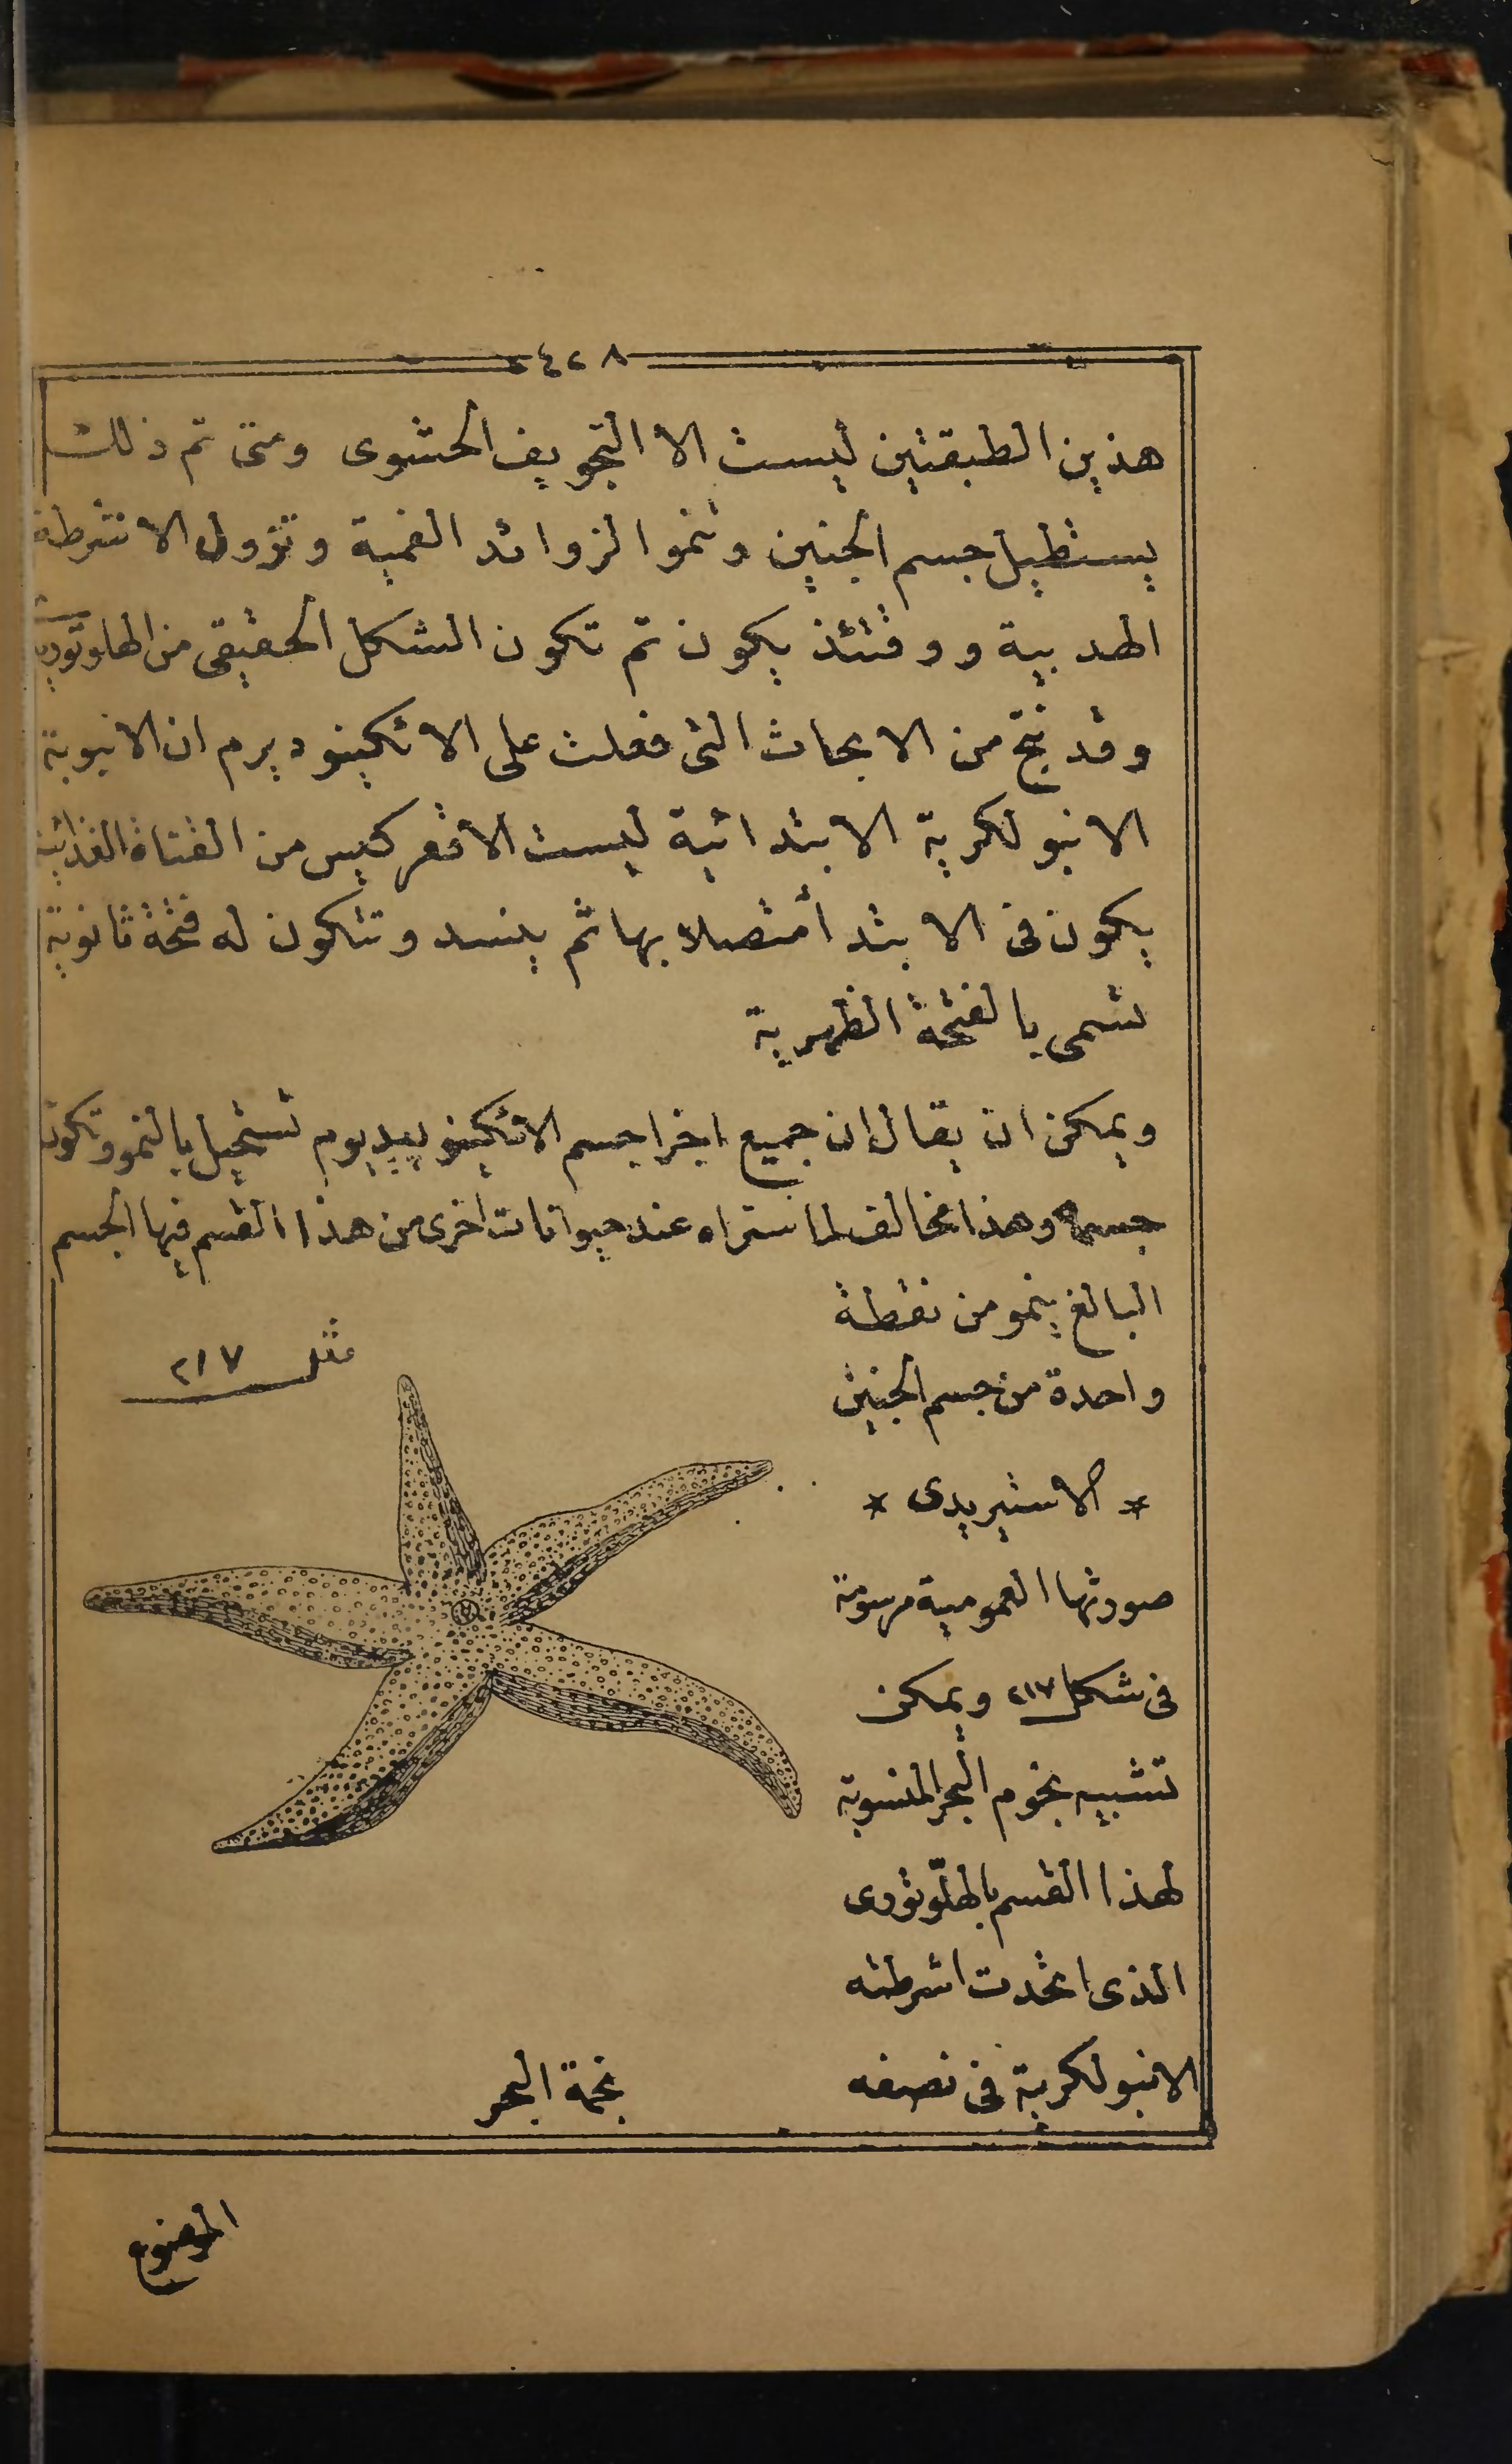 ٤٢٨
هذين الطبقتين ليست الا التجويف الحشوى ومتى تم ذلك
يستطيل جسم الجنين وتنمو الزوائد الفمية وتزول الاشرطة
الهدبية ووقتئذ يكون تم تكون الشكل الحقيقى من الهلوتوريـ
وقد نتج من الابحاث التى فعلت على الاتكينوديرم ان الانبوبة
الانبولكرية الابتدائية ليست الا قعر كيس من القناة الغذائية
يكون فى الابتدأ متصلا بها ثم ينسد وتتكون له فتحة ثانوية
تسمى بالفتحة الظهرية
ويمكن ان يقال ان جميع اجزا جسم الاتكينوبيديوم تستحيل بالنمو وتكون
جسما وهذا مخالف لما ستراه عند حيوانات اخرى من هذا القسم فيها الجسم
البالغ ينمو من نقطة
واحدة من جسم الجنين
* الاستيريدى *
صورتها العمومية مرسومة
فى شكل ٢١٧ ويمكن
تشبيه نجوم البحر المنسوبة
لهذا القسم بالهلوتورى
الذى اتخدت اشرطته
الانبولكرية فى نصفه
٢١٧
نجمة البحر
الموضوع